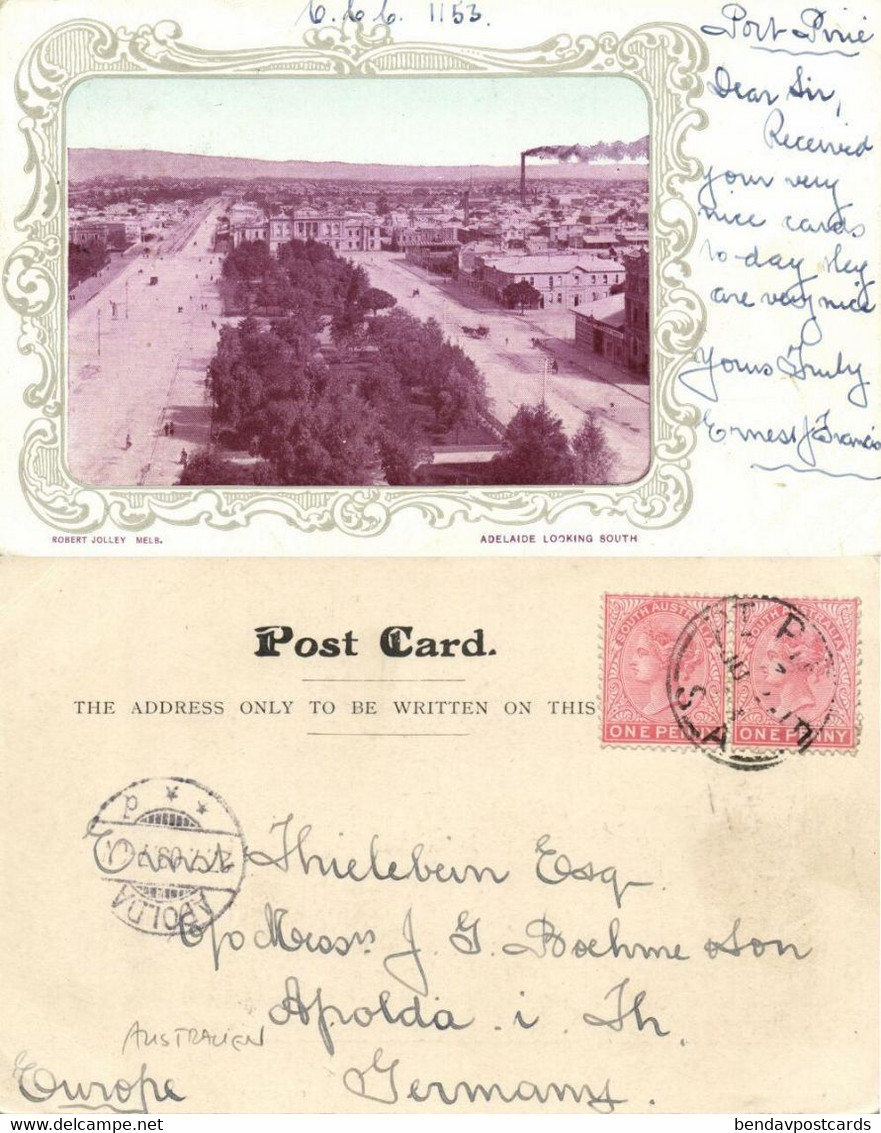 C.C.C. 1153.
Port Pirie
Dear Sir,
Received
your very
nice cards
to day they
are very nice
Yours Truly
Ernest J Francis
ROBERT JOLLEY MELB.
ADELAIDE LOOKING SOUTH
Post Card.
THE ADDRESS ONLY TO BE WRITTEN ON THIS
SOUTH AUSTRALIA
ONE PENNY
SOUTH AUSTRALIA
ONE PENNY
S.A
APOLDA
Ernst Thielebein Esq
C/o Messrs J. G. Boehme & Son
Apolda i. Th.
AUSTRALIEN
Europe Germany
www.delcampe.net
bendavpostcards